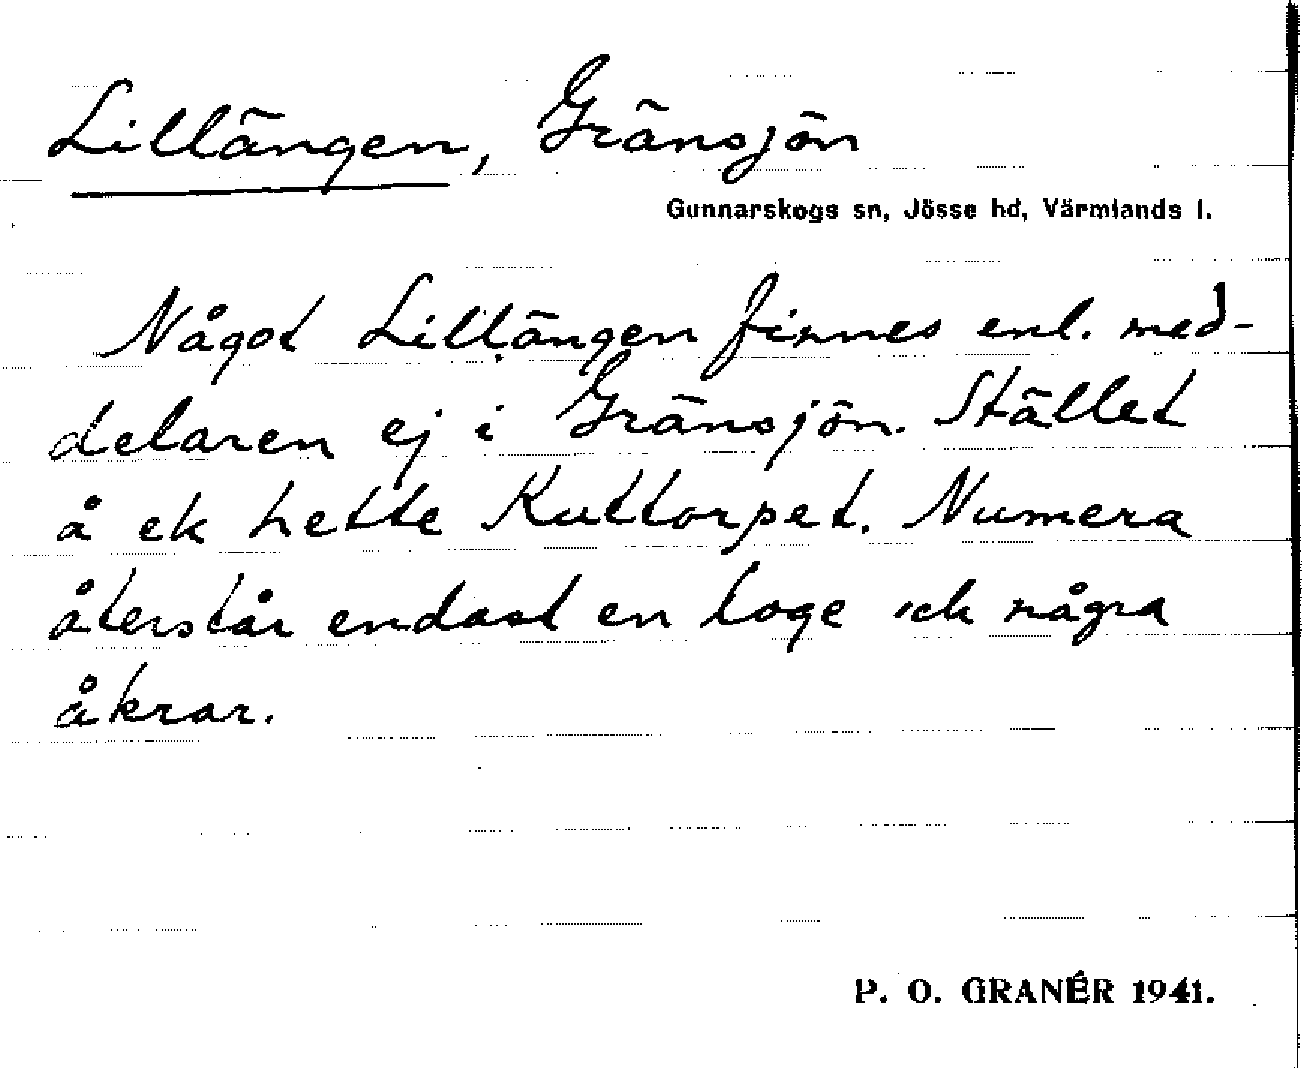 Lillängen, Gränsjön
Gunnarskogs sn, Jösse hd, Värmlands l.
Något Lillängen finnes enl. med-
delaren ej i Gränsjön. Stället
å ek hette Kuttorpet. Numera
återstår endast en loge och några
åkrar.
P. O. GRANÉR 1941.